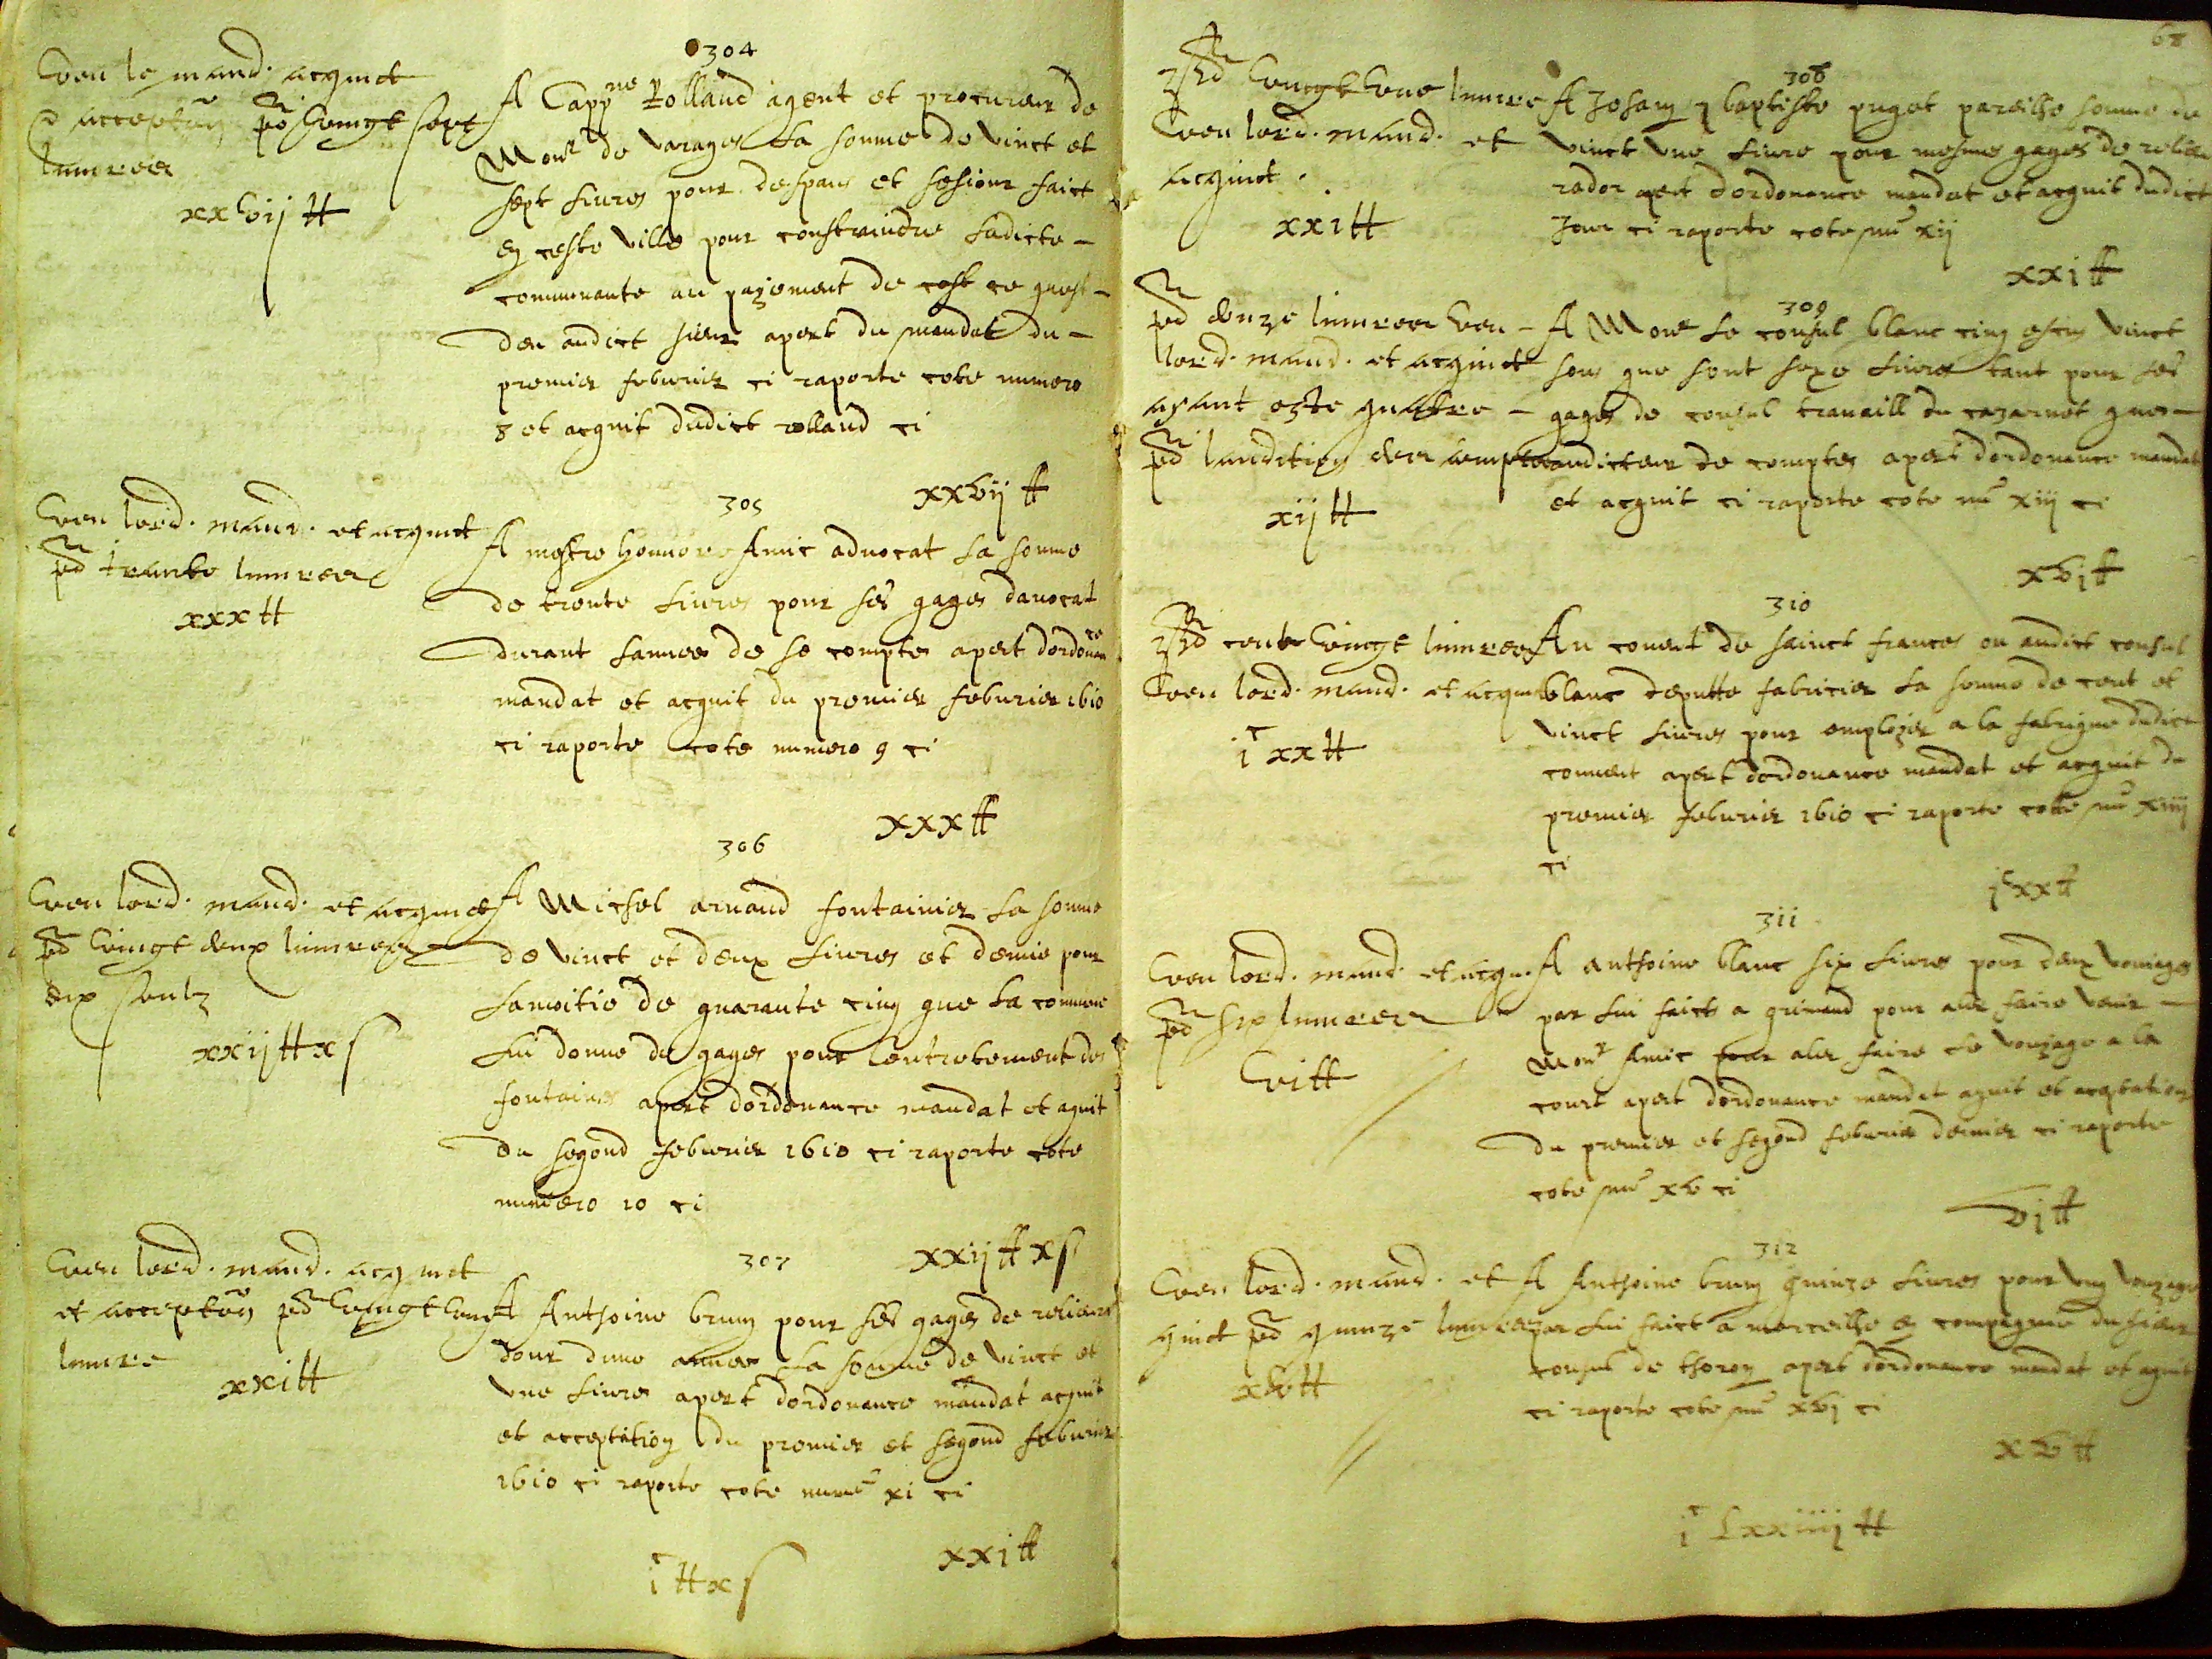 304
Veu le mand. acquict
et acceptaõn pd vingt sept
liuvres
xxvij tt
A Cappne Rolland agent et procureur de
Monsr de varages La somme de vinct et
sept Liures pour despans et sesiour faict
en ceste ville pour constraindre Ladicte
communante au payement de cest ce quest
deu audict sieur apert du mandat du
premier feburier ci raporte cote numero
8 et acquit dudict rolland ci
xxvij tt
305
Veu lord. mand. et acquict
pd trante liuvres
xxx tt
A mestre honnore Amic aduocat La somme
de trente Liures pour ses gages dauocat
durant Lannee de se comptes apert dordonance
mandat et acquit du premier feburier 1610
ci raporte cote numero 9 ci
xxx tt
306
Veu lord. mand. et acquict
pd vingt deux liuvres
dix soulz
xxij tt x s
A Michel arnaud fontainier La somme
de vinct et deux Liures et demie pour
Lamoitie de quarante cinq que La commune
Lui donne de gages pour Lentretement des
fontaines apert dordonance mandat et aquit
du segond feburier 1610 ci raporte cote
numero 10 ci
xxij tt x s
307
Veu lord. mand. acquict
et acceptaõn pd vingt une
liuvre
xxi tt
A Anthoine brun pour ses gages de
dour dune annee La somme de vinct et
vne Liures apert dordonance mandat acquit
et acceptation du premier et segond feburier
1610 ci raporte cote numo xi ci
xxi tt
i c tt x s
68
308
pd vingt une liuvre
Veu lord. mand. et
acquict.
xxi tt
A Jehan baptiste puget pareilhe somme de
vinct vne Liure pour mesmes gages de
rador apert dordonance mandat et acquit dudict
Jour ci raporte cote nuo xij
xxi tt
309
pd douze liuvres Veu
lord. mand. et acquict
ayant este quatre
pd laudition des comptes
xij tt
A Monsr Le consul blanc cinq escus vinct
sous que sont seze Liures tant pour ses
gages de consul trauaill du cazarnet que
auditeur de comptes apert dordonance mandat
et acquit ci raporte cote nuo xiij ci
xvi tt
310
pd cent vingt liuvres
Veu lord. mand. et acquict
i c xx tt
Au couent de sainct frances ou audict consul
blanc deputte fabricier La somme de cent et
vinct Liures pour employer a la fabrique dudict
couuent apert dordonance mandat et acquit du
premier feburier 1610 ci raporte cotte nuo xiiij
ci
i c xx tt
311
Veu lord. mand. et acqu.
pd six liuvres
vi tt
A anthoine blanc six Liures pour deux voiages
par Lui faicts a grimaud pour aler faire venir
Monsr Amic pour aler faire Le voyage a la
court apert dordonance mandat aquit et aceptation
du premier et segond feburier dernier ci raporte
cote nuo xv ci
vi tt
312
Veu lord. mand. et
quict pd quinze liuvres
xv tt
A Anthoine brun quinze Liures pour vng voyage
par Lui faict a marceilhe en compagnie du sieur
consul de thoron apert dordonance mandat et aquit
ci raporte cote nuo xvi ci
xv tt
i c Lxxiiij tt